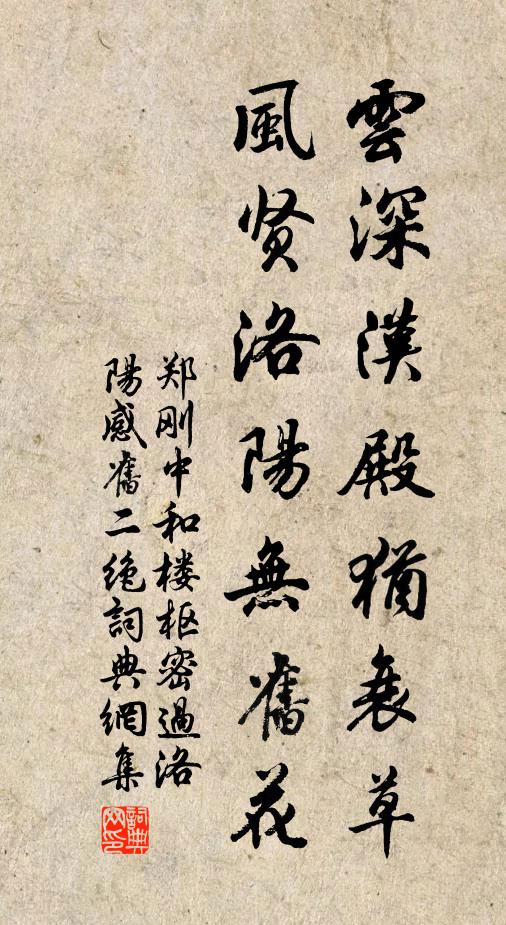 雲深漢殿猶衰草
風贤洛陽無舊花
郑刚中和楼枢密過洛
陽感舊二绝詞典網集
詞典网印